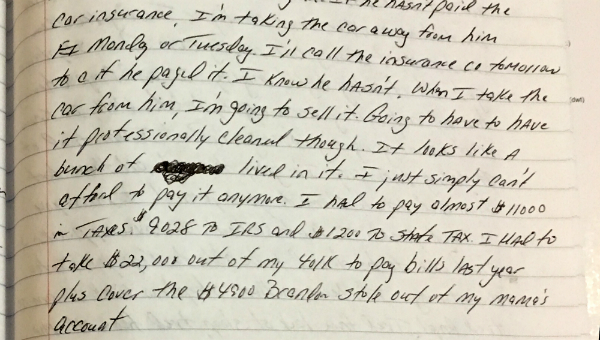 If he hasn't paid the
car insurance, I'm taking the car away from him
Monday or Tuesday. I'll call the insurance co tomorrow
to c if he payed it. I know he hasn't. When I take the
car from him, I'm going to sell it. Going to have to have
it professionally cleaned though. It looks like A
bunch of lived in it. I just simply can't
afford to pay it anymore. I had to pay almost $11000
in TAXES. $9028 TO IRS and $1200 TO State TAX. I HAD to
take $22,000 out of my 401K to pay bills last year
plus cover the $4900 Brandon stole out of my mama's
account